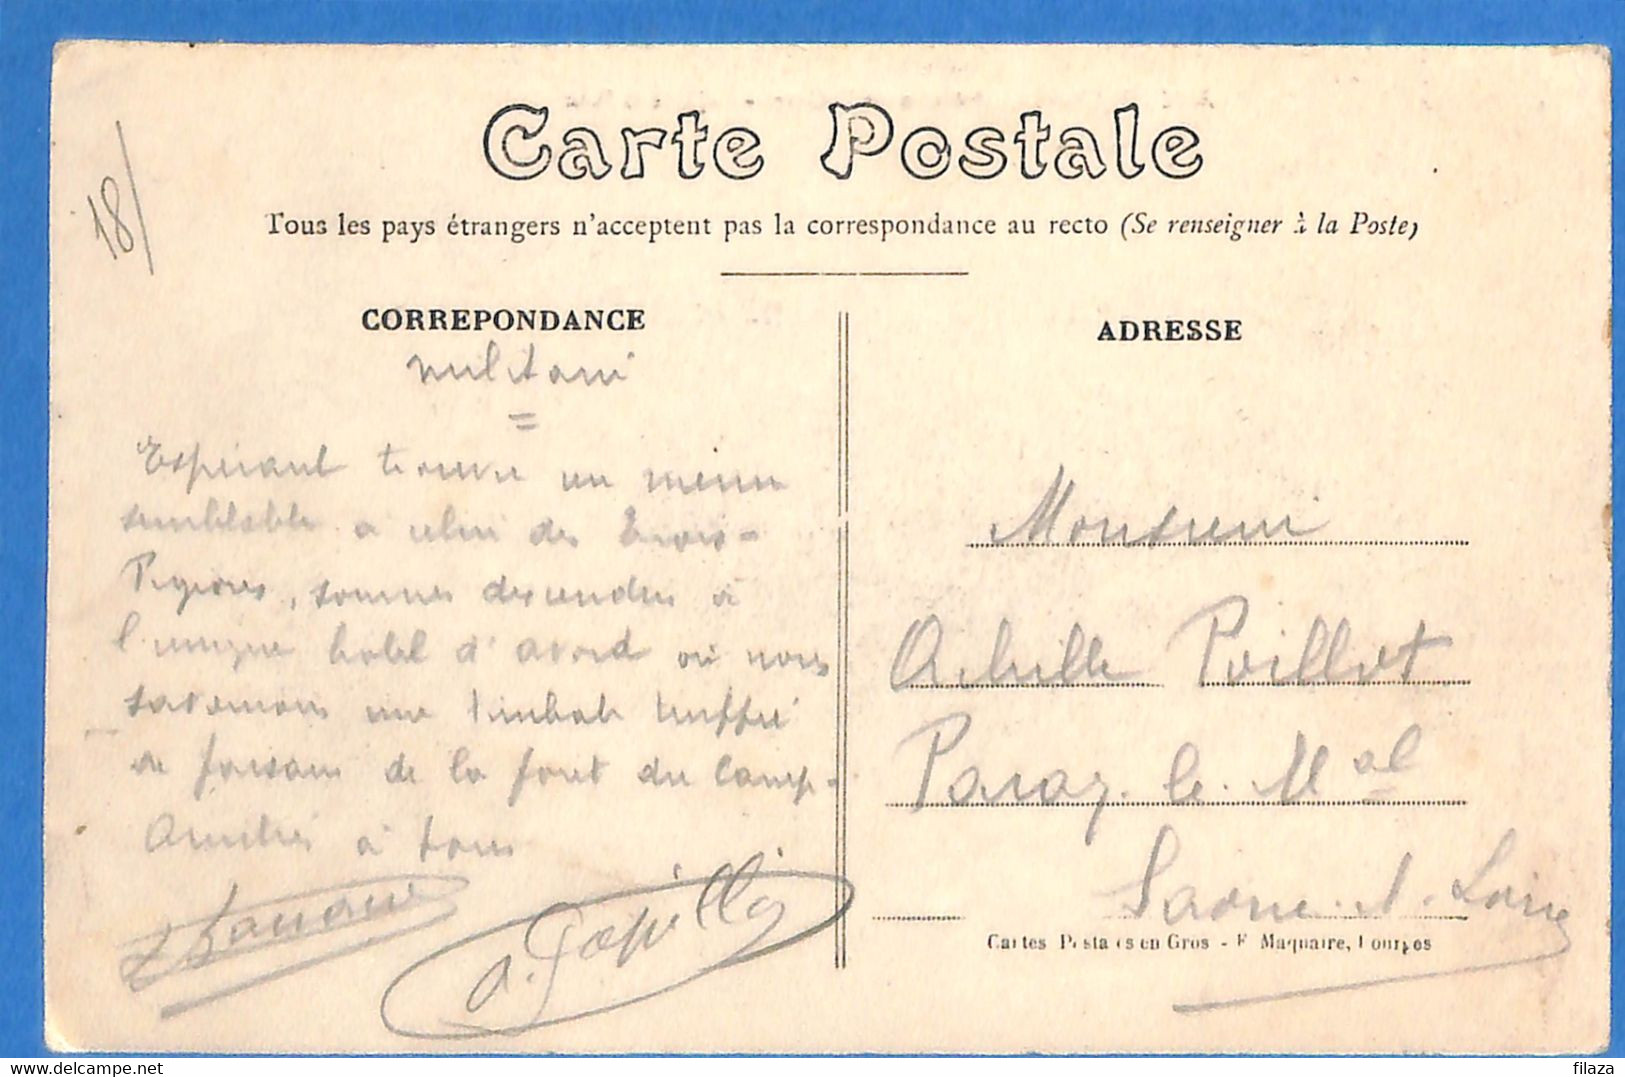 Carte Postale
Tous les pays étrangers n'acceptent pas la correspondance au recto (Se renseigner à la Poste)
18/
CORREPONDANCE
militaire
=
Espérant trouver un menu
semblable a celui des Trois-
Pigeons, sommes descendus à
l'unique hotel d'avord où nous
savourons une timbale truffée
de faisans de la foret du camp.
Amitiés à tous
ADRESSE
Monsieur
Achille Poillot
Paray. le. Mal
Saone. et. Loire
Cartes Postales en Gros - E. Maquaire, Bourges
filaza